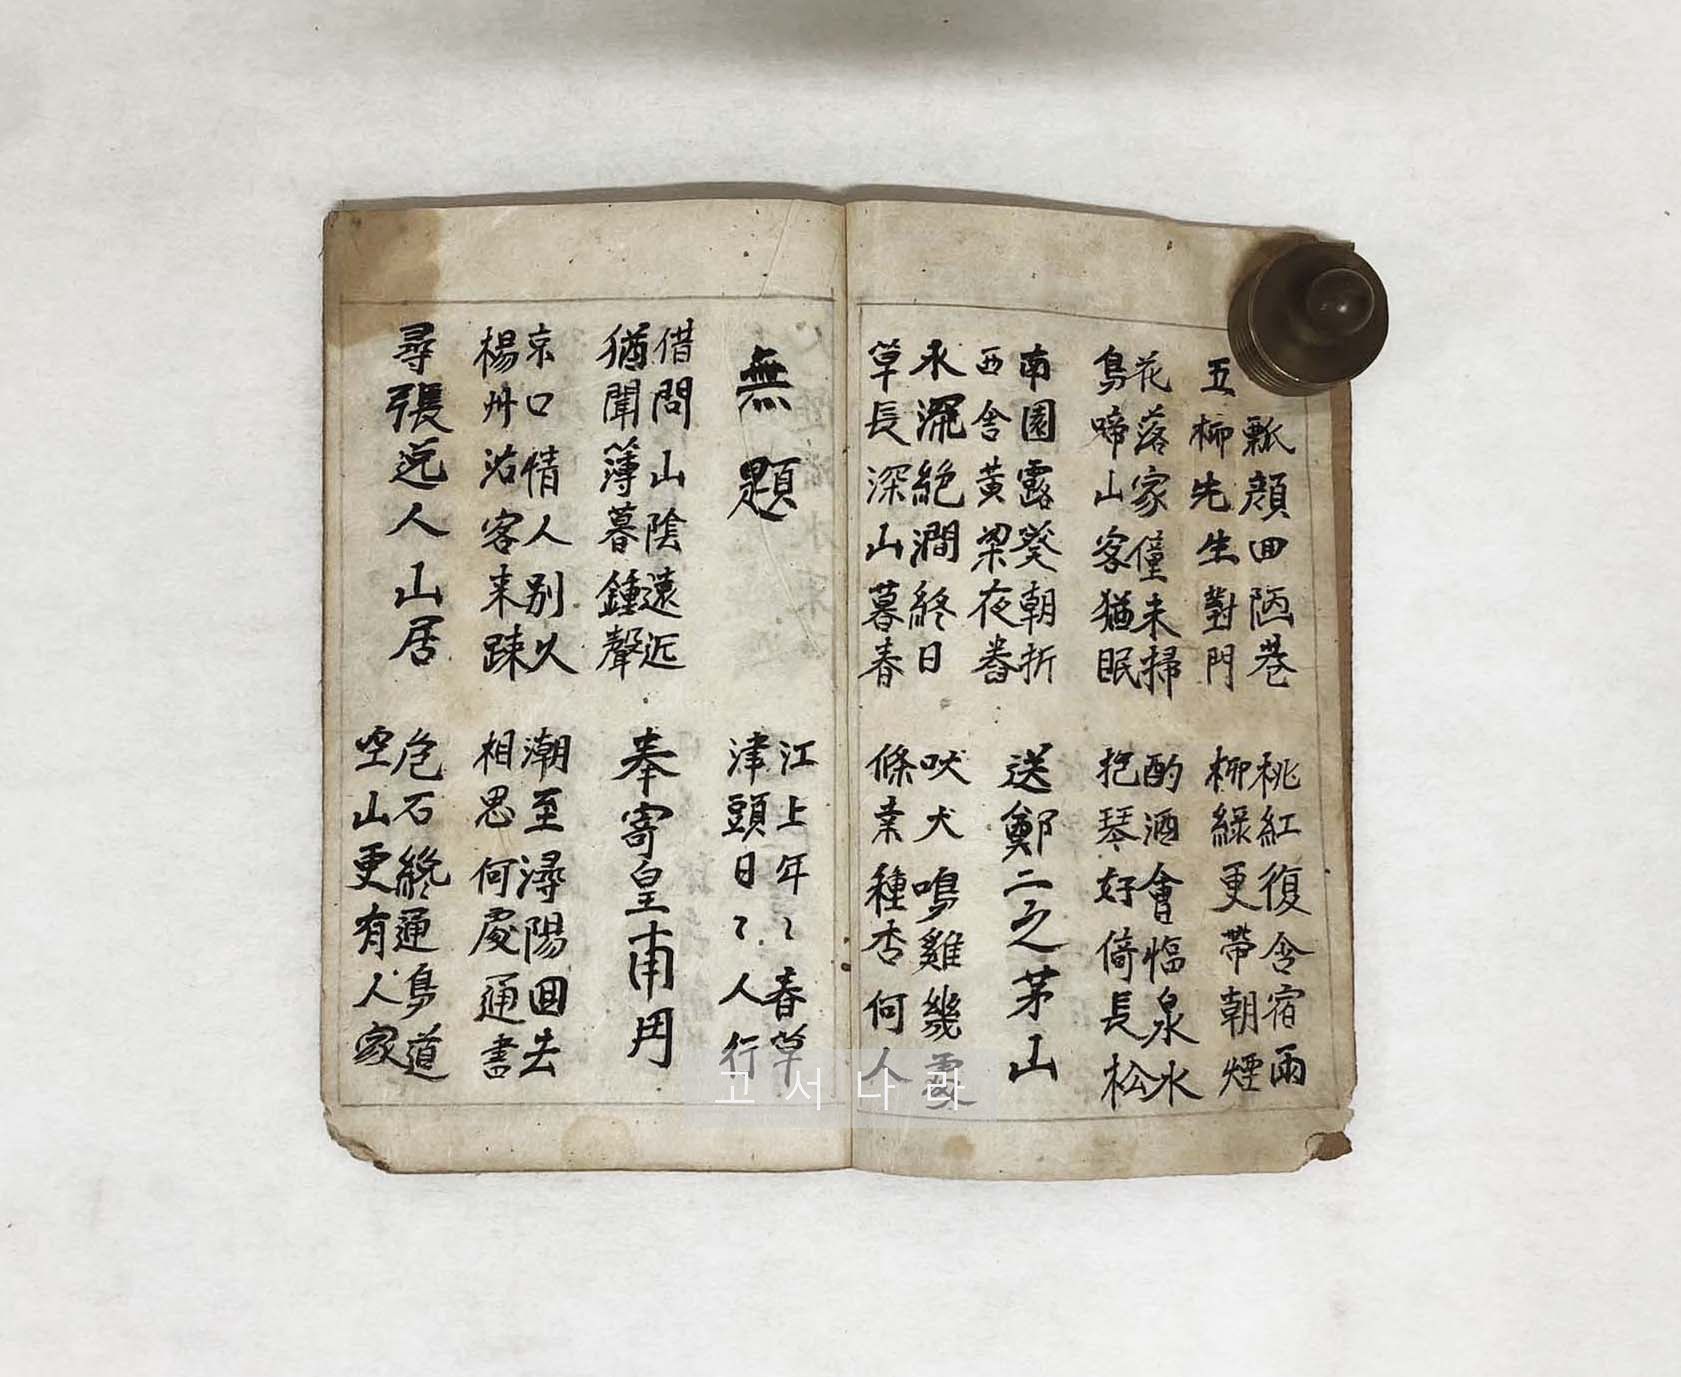 瓢顔囬陋巷
五柳先生對門
桃紅復含宿雨
柳綠更帶朝煙
花落家僮未掃
鳥啼山客猶眠
酌酒會臨泉水
抱琴好倚長松
南園露葵朝折
西舍黃梁夜舂
送鄭二之茅山
水流絕澗終日
草長深山暮春
吠犬鳴雞幾處
條業種杏何人
無題
江上年〻春草
津頭日〻人行
借問山陰遠近
猶聞薄暮鍾聲
奉寄皇甫冉
京口情人別久
楊州沽客来踈
潮至潯陽回去
相思何處通書
尋張逸人山居
危石終通鳥道
空山更有人家
고서나라